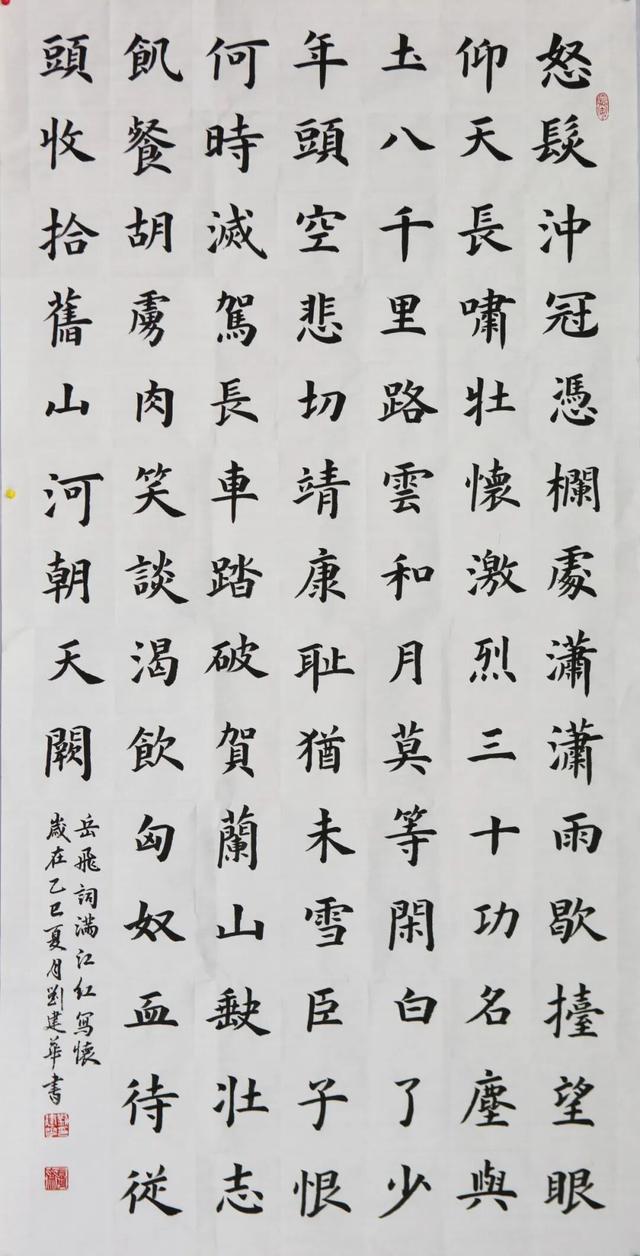 怒髮沖冠憑欄處瀟瀟雨歇擡望眼
仰天長嘯壯懷激烈三十功名塵與
圡八千里路雲和月莫等閑白了少
年頭空悲切靖康耻猶未雪臣子恨
何時滅駕長車踏破賀蘭山缺壯志
飢餐胡虜肉笑談渴飲匈奴血待從
頭收拾舊山河朝天闕
岳飛詞滿江紅寫懷
歲在乙巳夏月劉建華書